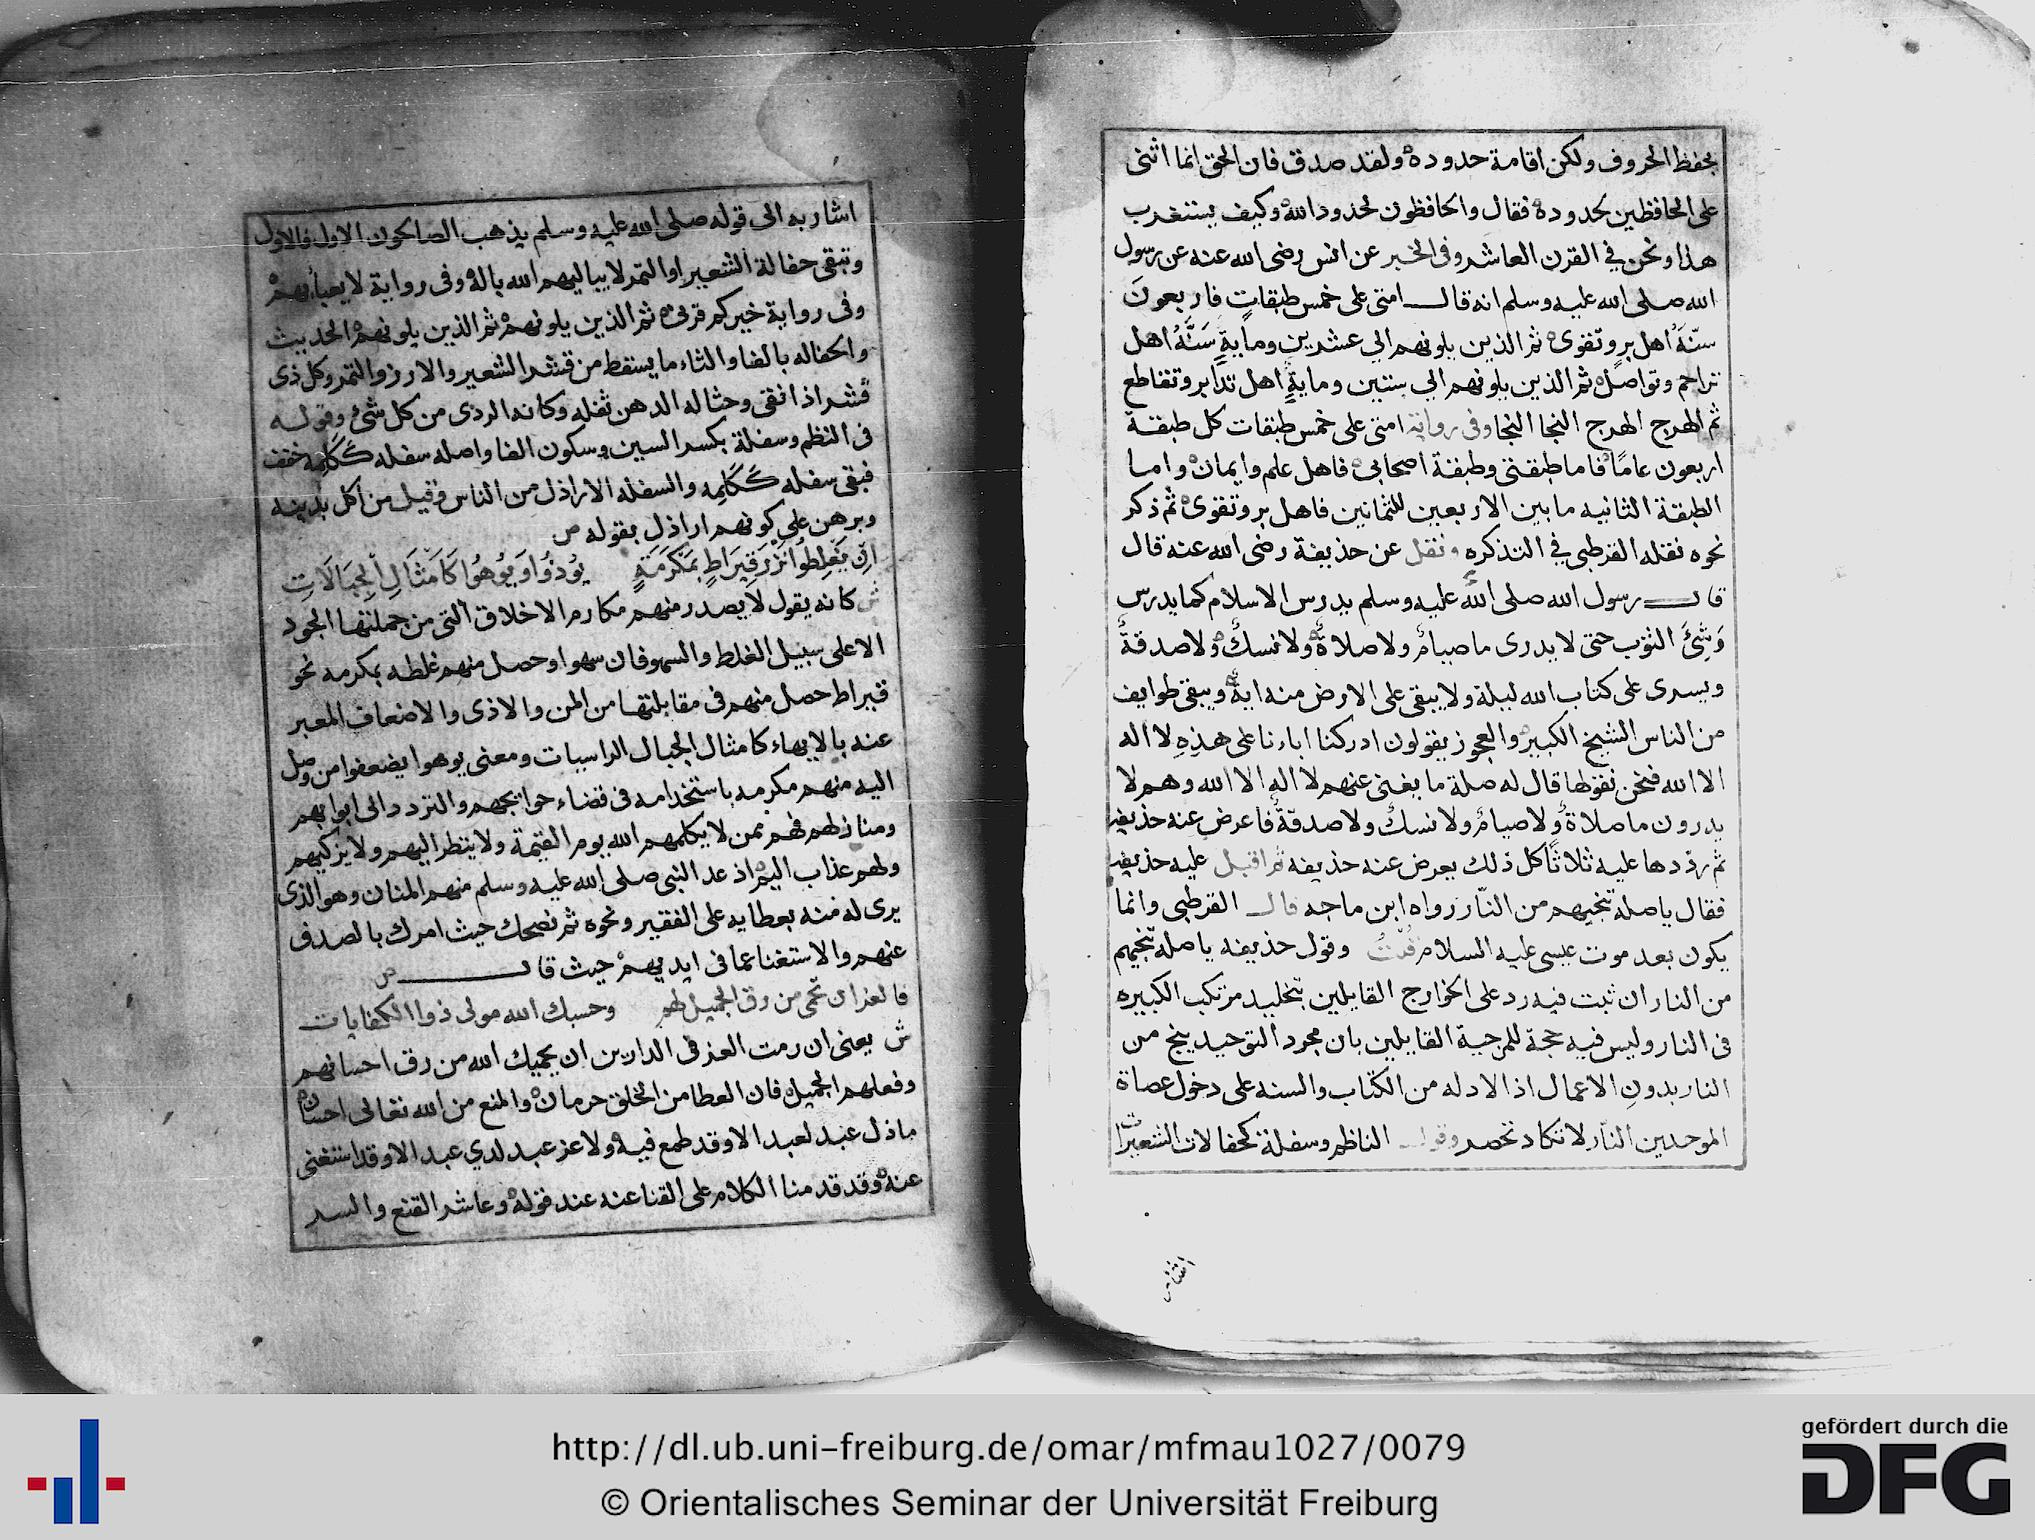 بحفظ الحروف ولكن اقامة حدوده ولقد صدق فان الحق انما اثنى
على الحافظين لحدوده فقال والحافظون لحدود الله وكيف يستغرب
هذا ونحن في القرن العاشر وفى الخبر عن انس رضى الله عنه عن رسول
الله صلى الله عليه وسلم انه قال امتى على خمس طبقات فاربعون
سنة اهل بر وتقوى ثم الذين يلونهم الى عشرين وماية سنة اهل
تراحم وتواصل ثم الذين يلونهم الى ستين وماية اهل تدابر وتقاطع
ثم الهرج الهرج النجا النجا وفى رواية امتى على خمس طبقات كل طبقة
اربعون عاما فاما طبقتى وطبقة اصحابى فاهل علم وايمان واما
الطبقة الثانيه ما بين الاربعين للثمانين فاهل بر وتقوى ثم ذكر
نحوه نقله القرطبى في التذكره ونقل عن حذيفة رضى الله عنه قال
قال رسول الله صلى الله عليه وسلم يدرس الاسلام كما يدرس
وشئ الثوب حتى لا يدرى ما صيام ولا صلاة ولا نسك ولا صدقة
ويسرى على كتاب الله ليلة ولا يبقى على الارض منه اية ويبقى طوايف
من الناس الشيخ الكبير والعجوز يقولون ادركنا اباءنا على هذه لا اله
الا الله فنحن نقولها قال له صلة ما يغنى عنهم لا اله الا الله وهم لا
يدرون ما صلاة ولا صيام ولا نسك ولا صدقة فاعرض عنه حذيفه
ثم رددها عليه ثلاثا كل ذلك يعرض عنه حذيفه ثم اقبل عليه حذيفه
فقال يا صلة تنجيهم من النار رواه ابن ماجه قال القرطبى وانما
يكون بعد موت عيسى عليه السلام قلت وقول حذيفه يا صلة تنجيهم
من النار ان ثبت فيه رد على الخوارج القايلين بتخليد مرتكب الكبيره
فى النار وليس فيه حجة للمرجية القايلين بان مجرد التوحيد ينج من
النار بدون الاعمال اذ الادله من الكتاب والسنه على دخول عصاة
الموحدين النار لا تكاد تحصر وقول الناظم وسفلة كحفالات الشعيرات
اشار به الى قوله صلى الله عليه وسلم يذهب الصالحون الاول فالاول
وتبقى حفالة الشعير او التمر لا يباليهم الله باله وفى رواية لا يعبأ بهم
وفى رواية خيركم قرنى ثم الذين يلونهم ثم الذين يلونهم الحديث
والحفاله بالفا والثاء ما يسقط من قشر الشعير والارز والتمر وكل ذى
قشر اذا نقى وحثاله الدهن ثفله وكانه الردى من كل شئ وقوله
فى النظم وسفلة بكسر السين وسكون الفا واصله سفله ككلمه خفف
فبقى سفله ككلمه والسفله الاراذل من الناس وقيل من اكل بدينه
وبرهن على كونهم اراذل بقوله ص
ان يغلطوا نزر قيراط بمكرمة يؤذوا ويوهوا كامثال الجبالات
ش كانه يقول لا يصدر منهم مكارم الاخلاق التى من جملتها الجود
الا على سبيل الغلط والسهو فان سهوا وحصل منهم غلطه بكرمه نحو
قيراط حصل منهم فى مقابلتها من المن والاذى والاضعاف المعبر
عنه بالايهاء كامثال الجبال الراسيات ومعنى يوهوا يضعفوا من وصل
اليه منهم مكرمه باستخدامه فى قضاء حوائجهم والتردد الى ابوابهم
ومنازلهم فهم ممن لا يكلمهم الله يوم القيمة ولا ينظر اليهم ولا يزكيهم
ولهم عذاب اليم اذ عد النبى صلى الله عليه وسلم منهم المنان وهو الذى
يرى له منه بعطايه على الفقير ونحوه ثم نصحك حيث امرك بالصدف
عنهم والاستغنا عما فى ايديهم حيث قال ص
فالعز ان تحمى من رق الجميل لهم وحسبك الله مولى ذو الكفايات
ش يعنى ان رمت العز فى الدارين ان يحميك الله من رق احسانهم
وفعلهم الجميل فان العطا من الخلق حرمان والمنع من الله تعالى احسان
ما ذل عبد لعبد الا وقد طمع فيه ولا عز عبد لدي عبد الا وقد استغنى
عنه وقد قدمنا الكلام على القناعنه عند قوله وعاشر القنع والسر
http://dl.ub.uni-freiburg.de/omar/mfmau1027/0079
© Orientalisches Seminar der Universität Freiburg
gefördert durch die
DFG